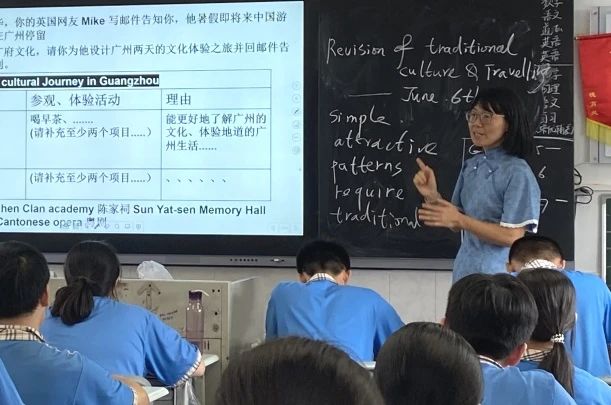 你的英国网友 Mike 写邮件告知你，他暑假即将来中国游
广州停留
府文化，请你为他设计广州两天的文化体验之旅并回邮件告
cultural Journey in Guangzhou
参观、体验活动 理由
喝早茶、......
(请补充至少两个项目.....)
能更好地了解广州的
文化、体验地道的广
州生活......
(请补充至少两个项目.....) 、、、、、、
Clan academy 陈家祠 Sun Yat-sen Memory Hall
Cantonese opera 粤剧
Revision of traditional
culture & Travelling
June 6th
simple
attractive
patterns
require
traditional